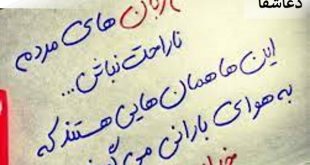 دعاشفا
زبان های مردم
ناراحت نباش ...
این ها همان هایی هستند که
به هوای بارانی